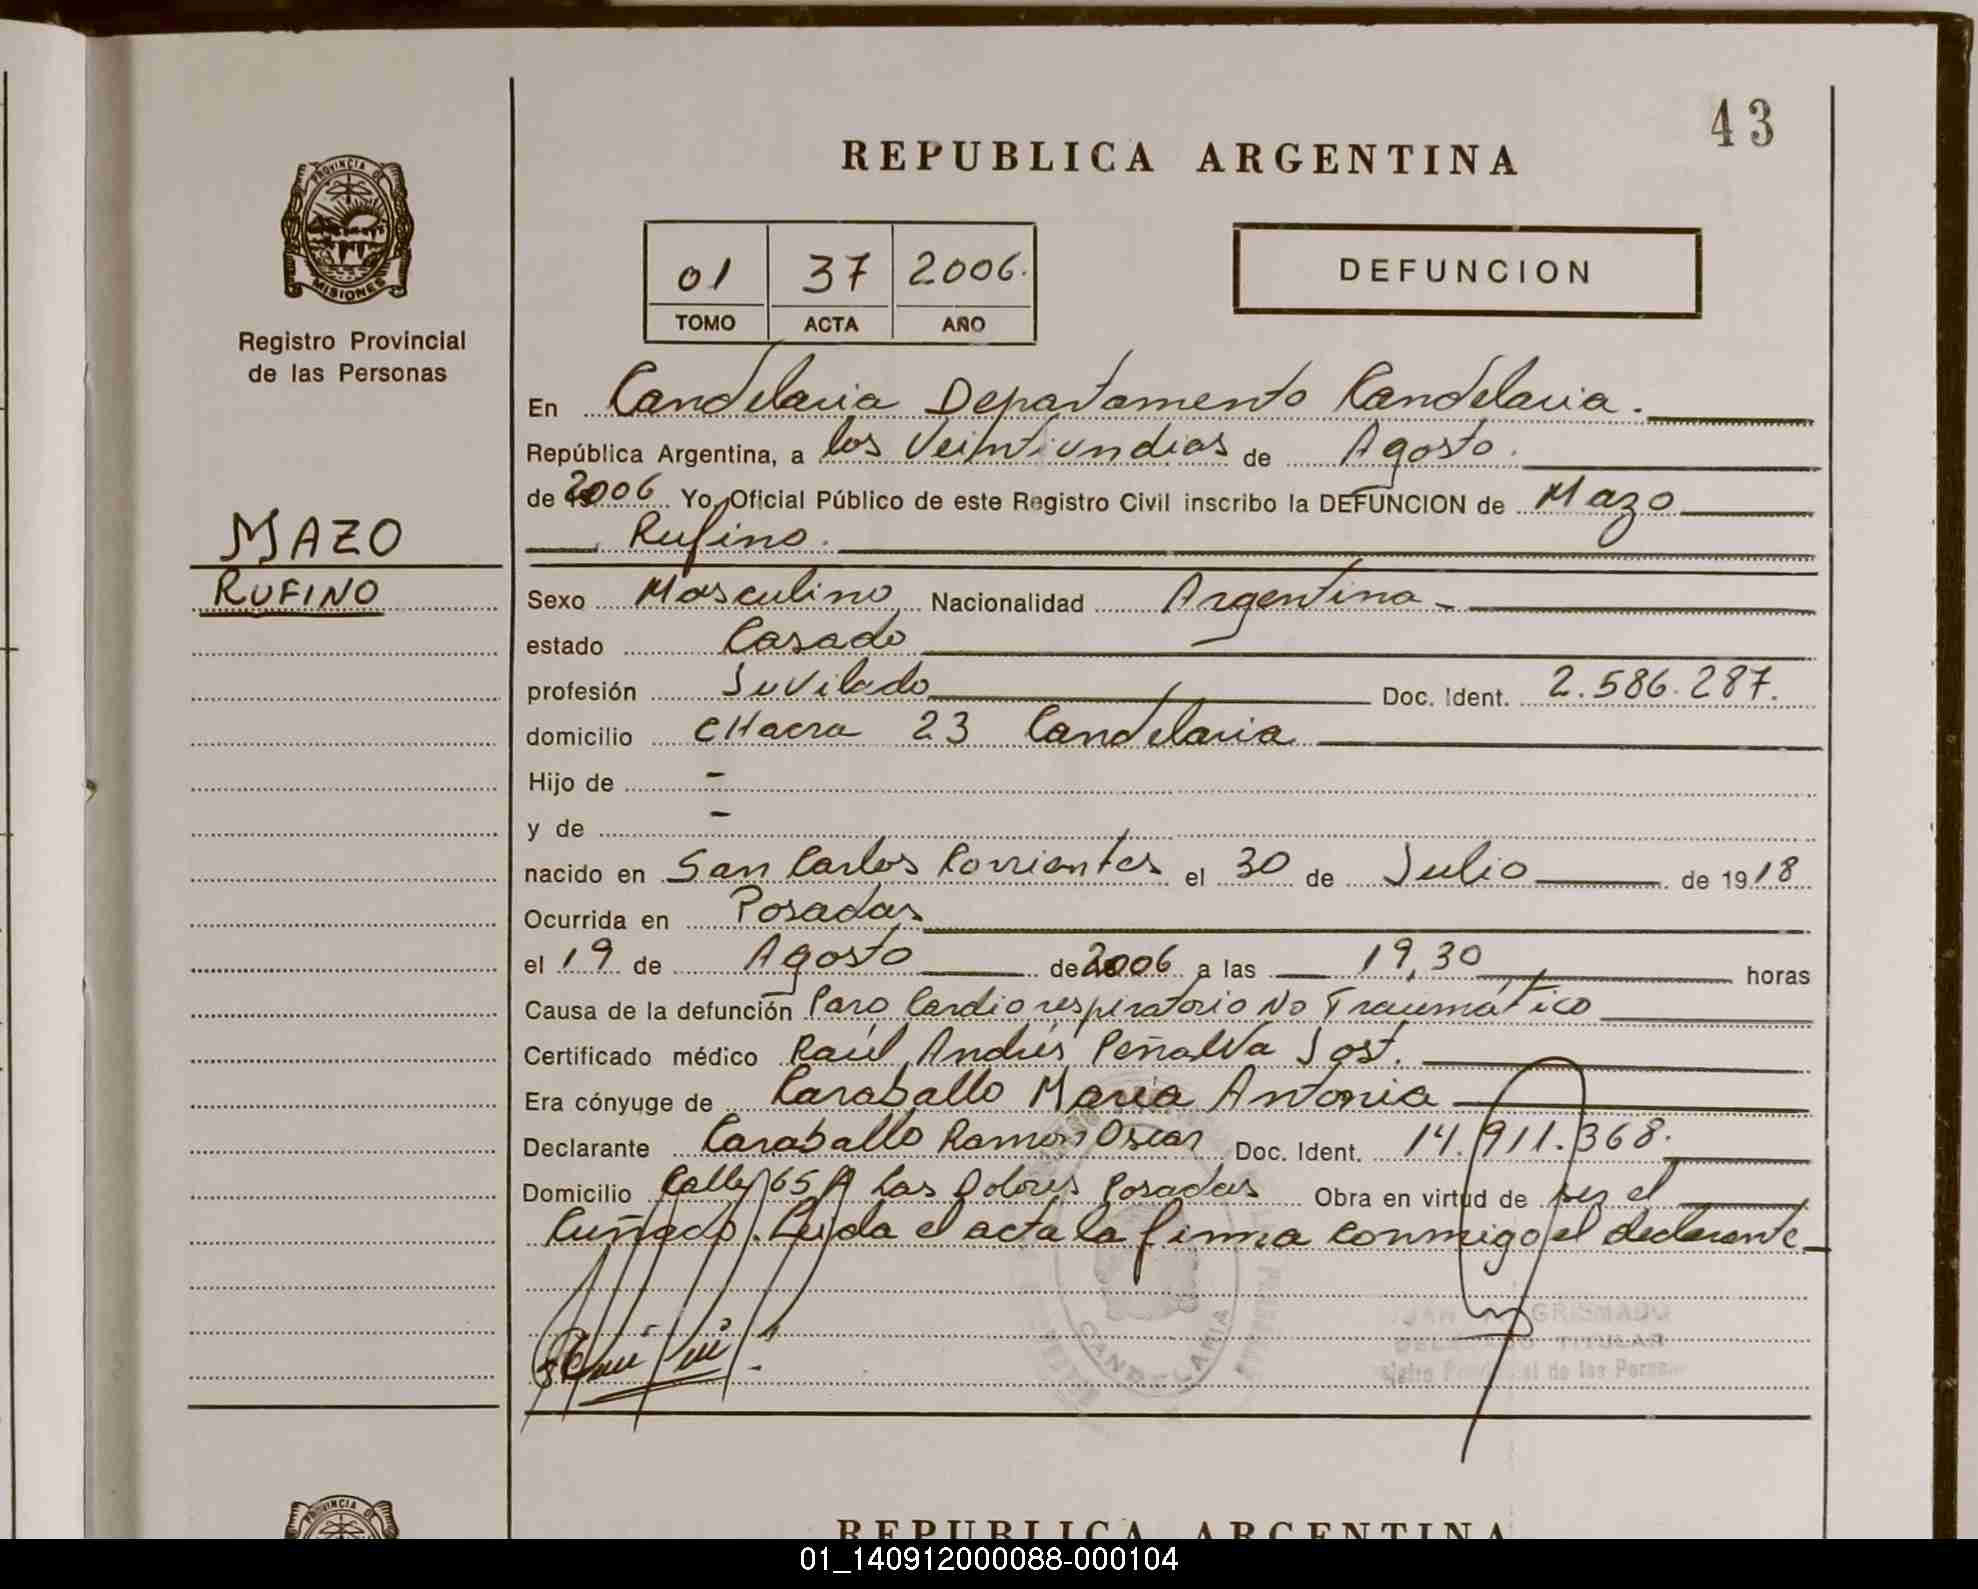 43
REPUBLICA ARGENTINA
PROVINCIA DE
MISIONES
Registro Provincial
de las Personas
01 37 2006.
TOMO ACTA AÑO
DEFUNCION
En Candelaria Departamento Candelaria.
República Argentina, a los Veintiundias de Agosto.
de 2006 Yo, Oficial Público de este Registro Civil inscribo la DEFUNCION de Mazo
Rufino.
MAZO
RUFINO
Sexo Masculino Nacionalidad Argentina
estado Casado
profesión Juvilado Doc. Ident. 2.586.287.
domicilio CHacra 23 Candelaria
Hijo de -
y de -
nacido en San Carlos Corrientes el 30 de Julio de 1918
Ocurrida en Posadas
el 19 de Agosto de 2006 a las 19,30 horas
Causa de la defunción Paro Cardiorespiratorio No Traumático
Certificado médico Raúl Andrés Peñalva Sost.
Era cónyuge de Caraballo Maria Antonia
Declarante Caraballo Ramon Oscar Doc. Ident. 14.911.368.
Domicilio Calle 65 A Las Dolores Posadas Obra en virtud de ser el
Cuñado. Leida el acta la firma conmigo el declarante
CANDELARIA
GRISMADO
DELEGADO TITULAR
Registro Provincial de las Personas
PROVINCIA DE
REPUBLICA ARGENTINA
01_140912000088-000104